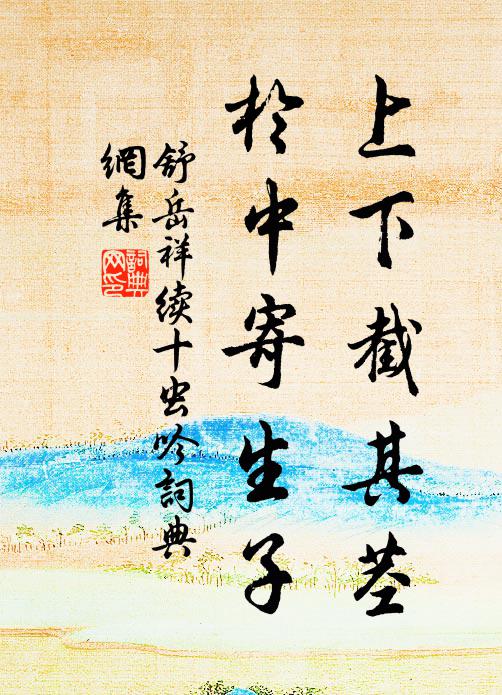 上下截其茎
於中寄生子
舒岳祥續十虫吟詞典
網集
詞典
网印